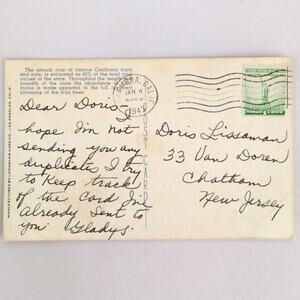 The annual crop of famous California fruits
and nuts, is estimated as 40% of the total crop
values of the state. Throughout the length and
breadth of the state the abundance of
is made apparent in the full
blooming of the fruit trees.
JAN 4
194
POST CARD
Dear Doris-I
hope I'm not
sending you any
duplicates I try
to keep track
of the card I've
already sent to
you Gladys.
Doris Lissaman
33 Van Doren
Chatham
New Jersey
MANUFACTURED BY LONGSHAW CARD CO., LOS ANGELES, CALIF.